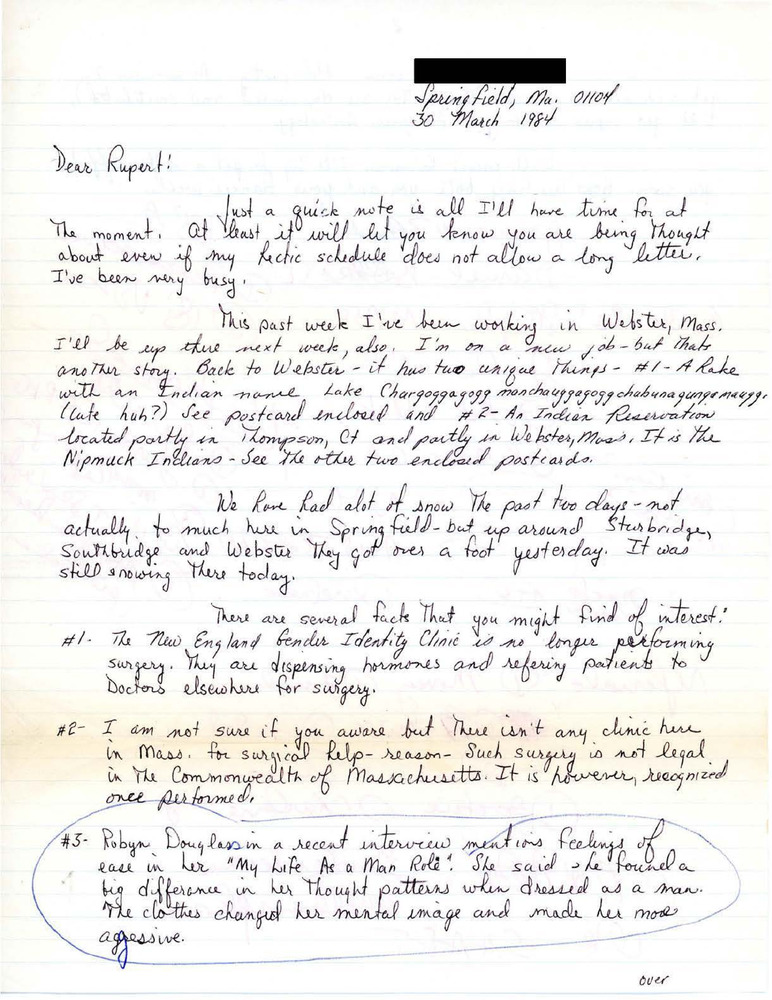 Springfield, Ma. 01104
30 March 1984
Dear Rupert!
Just a quick note is all I'll have time for at
The moment. At least it will let you know you are being Thought
about even if my hectic schedule does not allow a long letter.
I've been very busy.
This past week I've been working in Webster, Mass.
I'll be up there next week, also. I'm on a new job - but thats
another story. Back to Webster - it has two unique Things - #1 - A Lake
with an Indian name Lake Chargoggagogg manchauggagogg chabunagungamaugg.
(Cute huh?) See postcard enclosed and #2 - An Indian Reservation
located partly in Thompson, Ct and partly in Webster, Mass. It is the
Nipmuck Indians - See The other two enclosed postcards.
We have had alot of snow The past two days - not
actually to much here in Springfield - but up around Sturbridge,
Southbridge and Webster They got over a foot yesterday. It was
still snowing There today.
There are several facts That you might find of interest:
#1- The New England Gender Identity Clinic is no longer performing
surgery. They are dispensing hormones and refering patients to
Doctors elsewhere for surgery.
#2- I am not sure if you aware but There isn't any clinic here
in Mass. for surgical help - reason - Such surgery is not legal
in The Commonwealth of Massachusetts. It is however, recognized
once performed.
#3- Robyn Douglass in a recent interview mentions feelings of
ease in her "My Life As a Man Role". She said she found a
big differance in her Thought patterns when dressed as a man.
The clothes changed her mental image and made her more
aggessive.
over